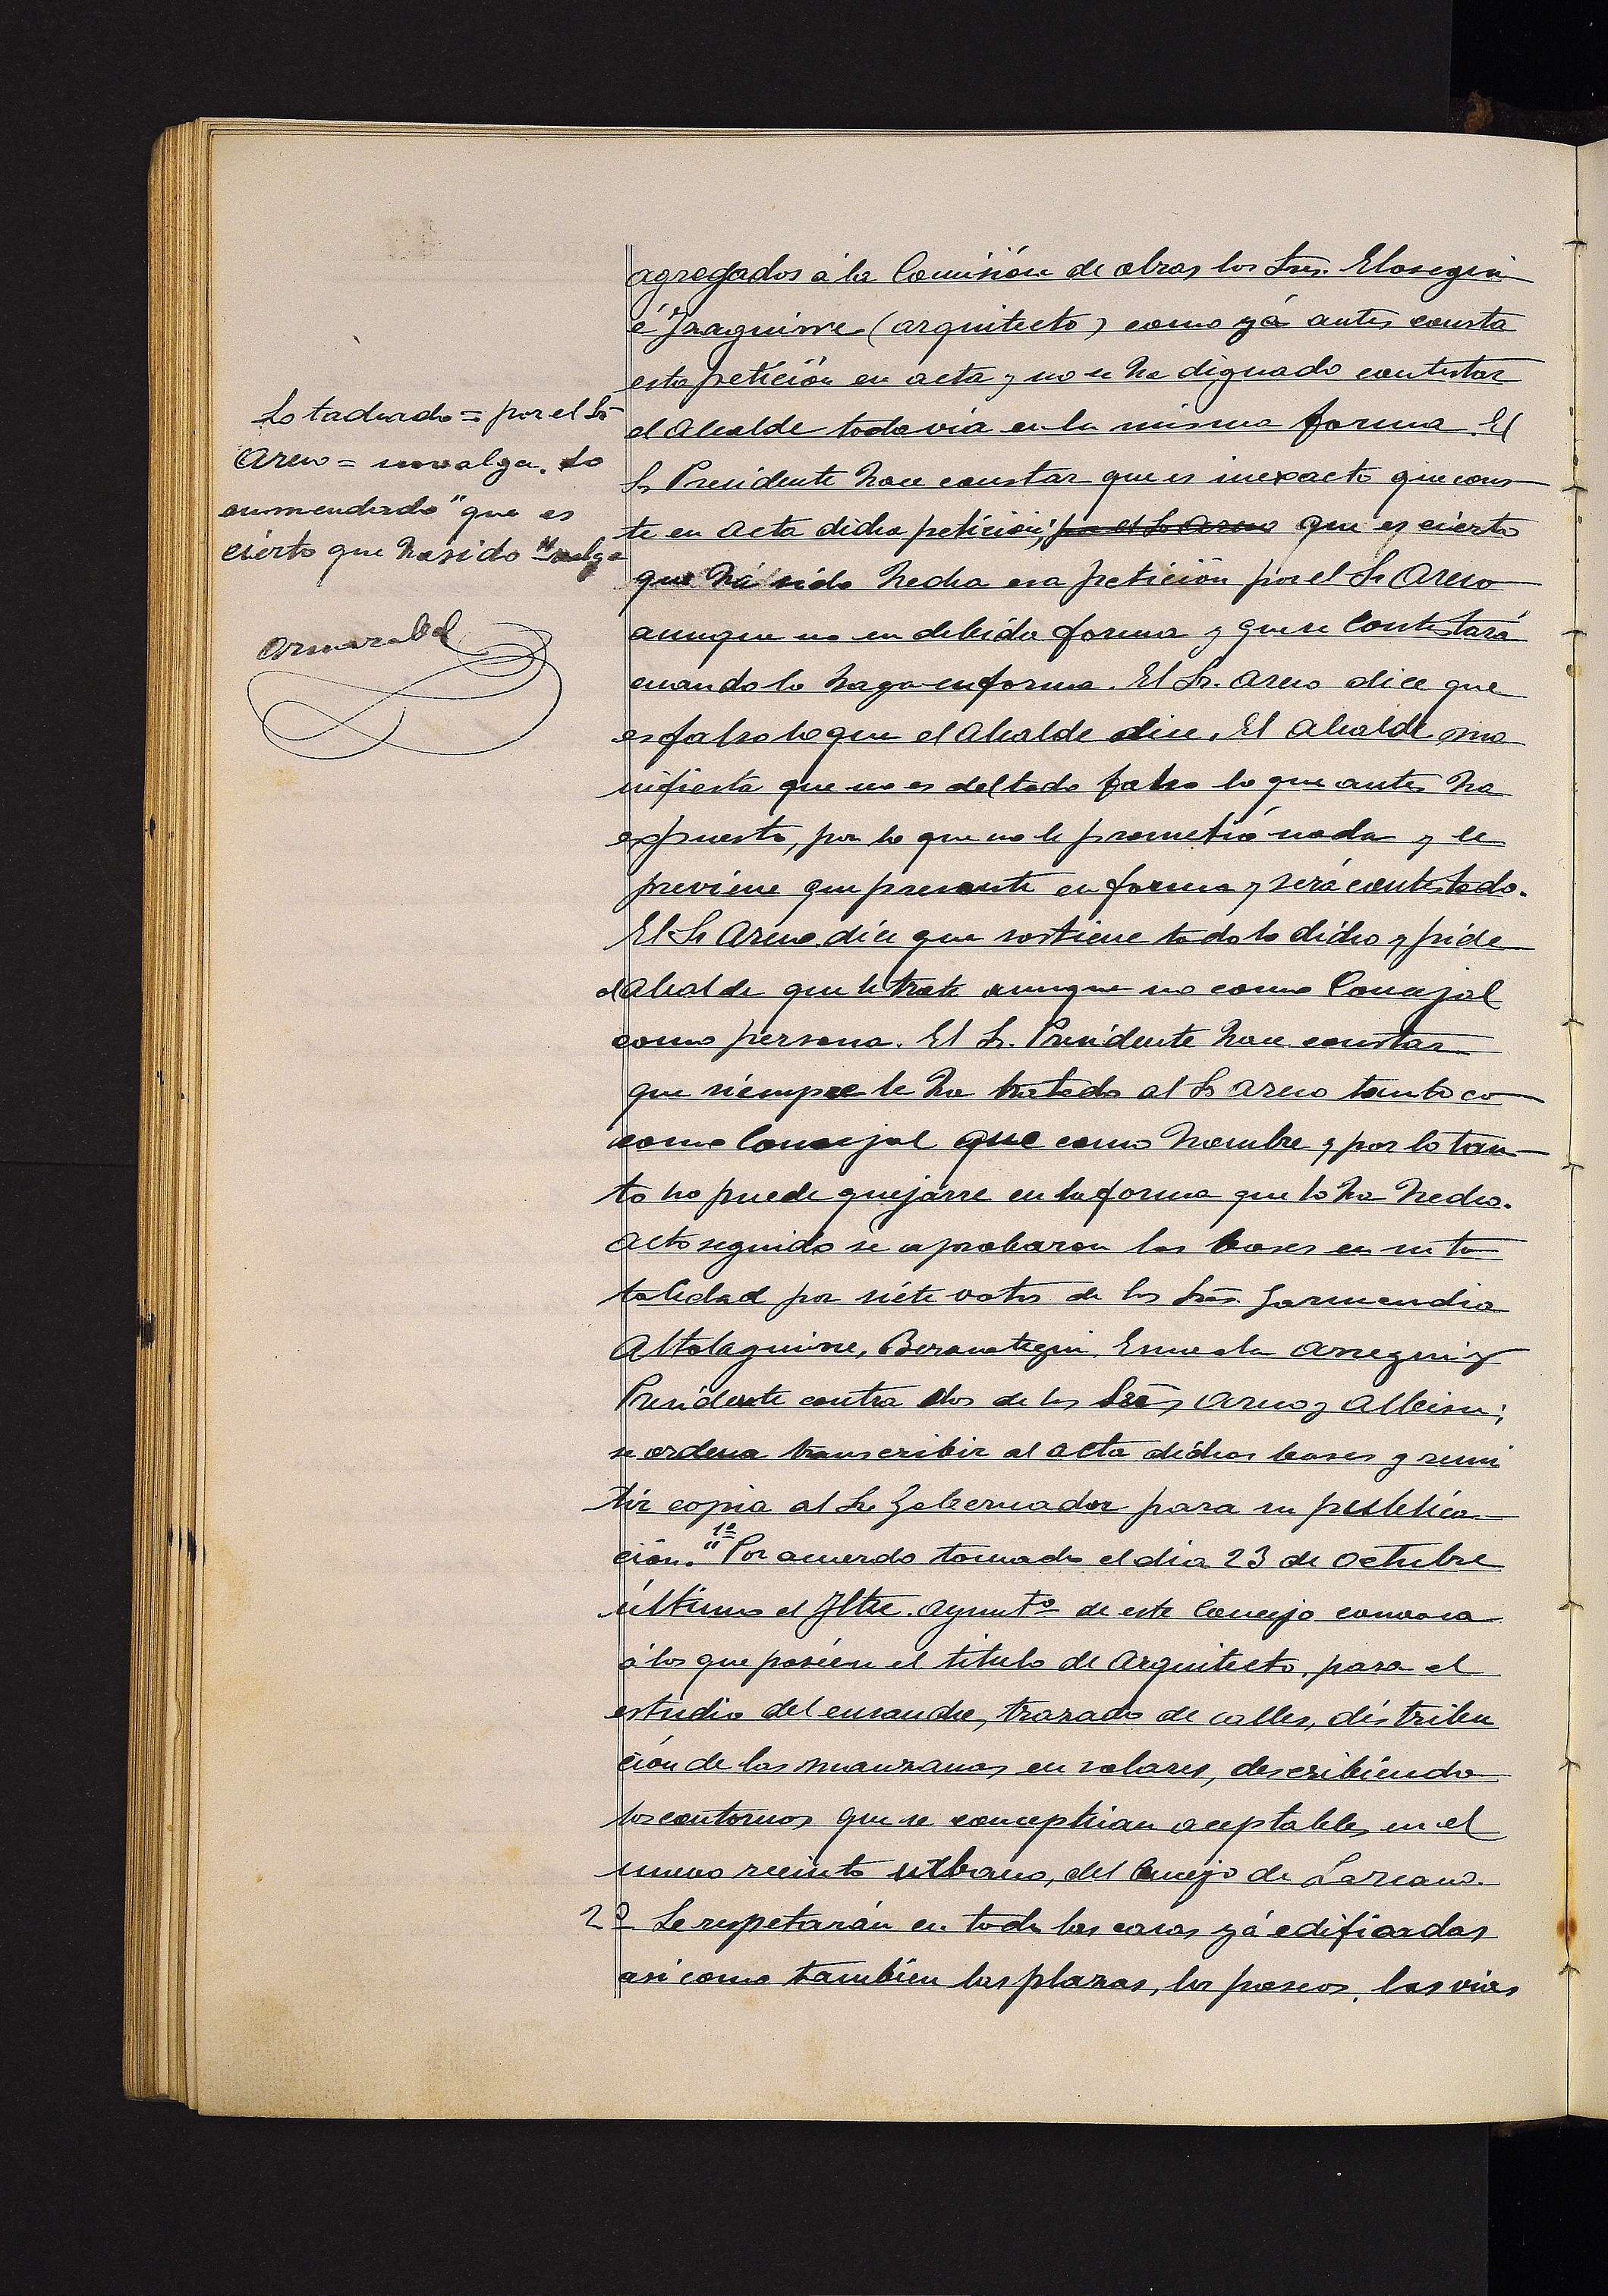 Lo tachado = por el Sr
Areno = no valga. Lo
enmendado "que es
cierto que ha sido" valga
agregados á la Comisión de obras los Sres. Elosegui
é Yzaguirre (arquitecto) como yá antes consta
esta petición en acta y no se ha dignado contestar
el Alcalde todavia en la misma forma. El
Sr Presidente hace constar que es inexacto que cons
te en acta dicha petición; por el Sr Areno que es cierto
que há sido hecha esa petición por el Sr Areno
aunque no en debida forma y que se contestará
cuando lo haga en forma. El Sr. Areno dice que
es falso lo que el Alcalde dice. El Alcalde ma
nifiesta que no es del todo falso lo que antes ha
expuesto, por lo que no le prometió nada y le
previene que presente en forma y será contestado.
El Sr Areno dice que sostiene todo lo dicho y pide
al Alcalde que le trate aunque no como Concejal
como persona. El Sr. Presidente hace constar
que siempre le ha tratado al Sr Areno tanto co
como Concejal que como hombre y por lo tan
to no puede quejarse en la forma que lo ha hecho.
Acto seguido se aprobaron las bases en su to
talidad por siete votos de los Sres Garmendia
Altolaguirre, Beranategui, Arregui y
Presidente contra dos de los Sres Areno y Albisu;
se ordena transcribir al acta dichas bases y remi
tir copia al Sr Gobernador para su publica
ción. "1ª Por acuerdo tomado el dia 23 de Octubre
último el Yltre. Ayuntº de este Concejo convoca
á los que poséen el titulo de Arquitecto, para el
estudio del ensanche, trazado de calles, distribu
ción de las manzanas en solares, describiendo
los contornos que se conceptúan aceptables en el
nuevo recinto urbano, del Concejo de Lazcano.
2ª Se respetarán en todo las casas yá edificadas
asi como tambien las plazas, los paseos, las vias